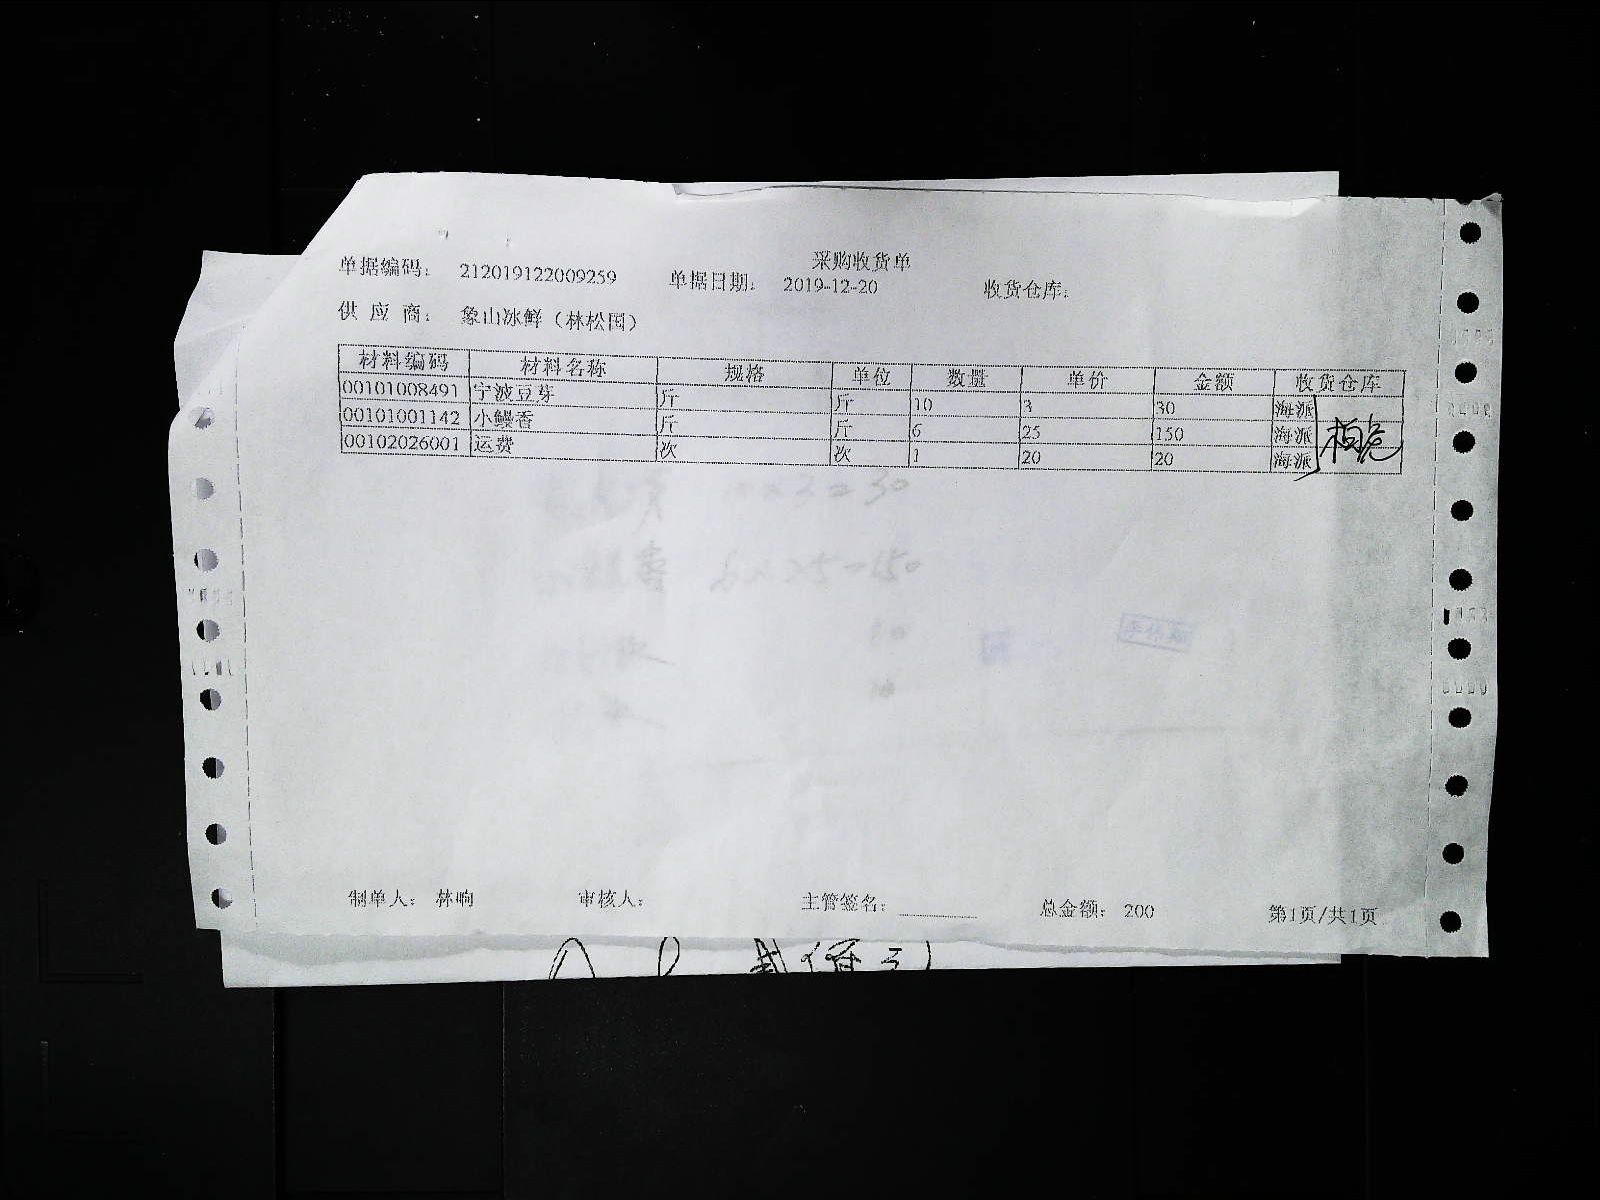 采购收货单
单据编码： 212019122009259 单据日期： 2019-12-20 收货仓库：
供 应 商： 象山冰鲜（林松国）
材料编码 材料名称 规格 单位 数量 单价 金额 收货仓库
00101008491 宁波豆芽 斤 斤 10 3 30 海派
00101001142 小鳗香 斤 斤 6 25 150 海派
00102026001 运费 次 次 1 20 20 海派
制单人： 林响 审核人： 主管签名： 总金额： 200 第1页/共1页